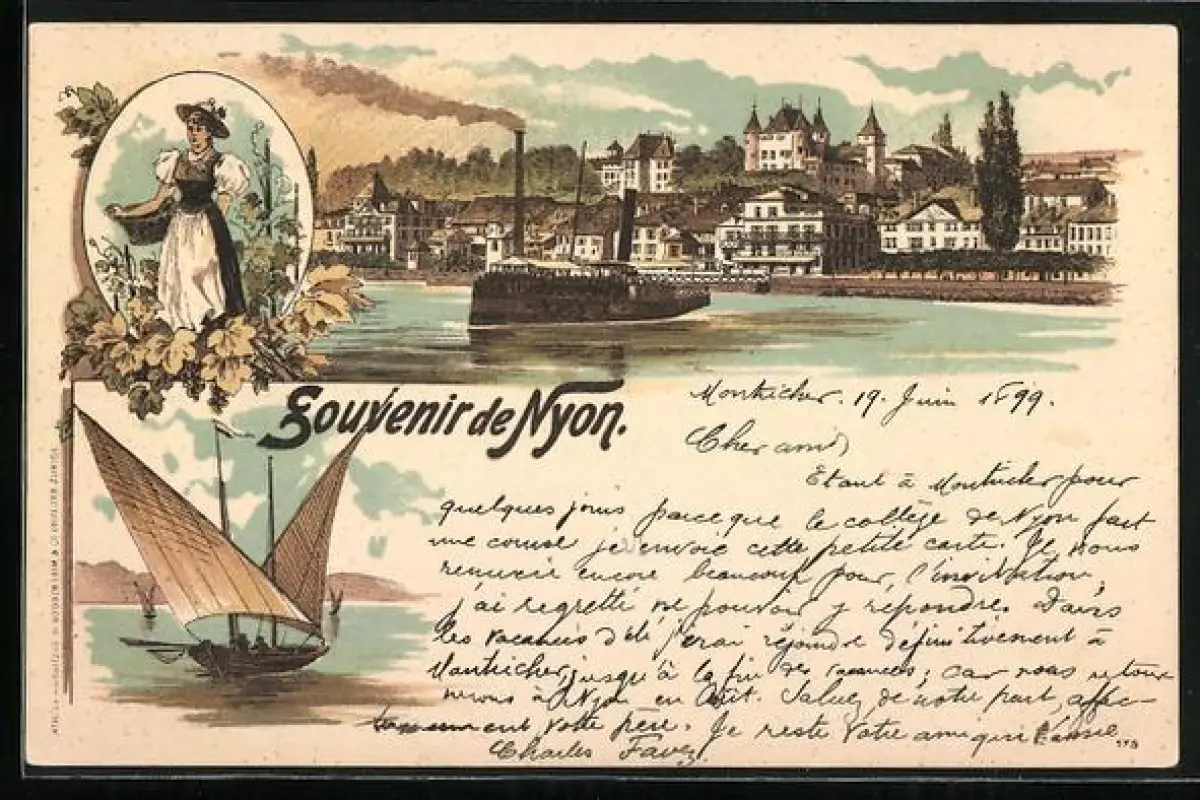 Souvenir de Nyon.
Montricher. 19. Juin 1899.
Cher ami,
Etant à Montricher pour
quelques jours parce que le collège de Nyon fait
une course je envoie cette petite carte. Je vous
remercie encore beaucoup pour l'invitation,
j'ai regretté ne pouvoir y répondre. Dans
les vacances d'été j'irai définitivement à
Montricher, jusqu'à la fin des vacances; car nous retour
nerons à Nyon en Août. Saluez de notre part, affec-
votre père. Je reste votre ami qui
Charles Favez.
175